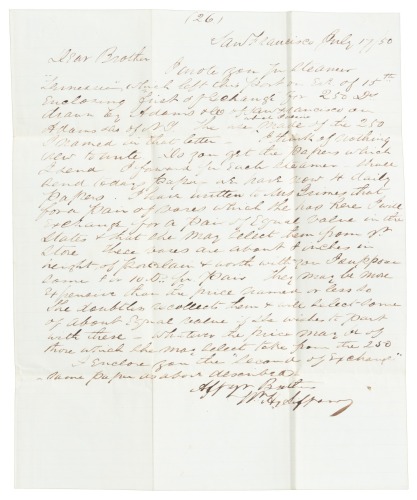 (26)
San Francisco July 17/50
Dear Brother
I wrote you pr Steamer
which left this Port on Eve of 15th
Enclosing first of Exchange for 250 Do
drawn by Adams & Co of San Francisco on
Adams & Co of NY The use made of the 250
I named in that letter I think of nothing
new to write Do you get the papers which
I send I forward in Each Steamer I have
send today paper we have now 4 daily
papers. I have written to Mrs James that
for a pair of vases which she has here I will
Exchange for a pair of Equal value in the
States & that she may select them from yr
Store These vases are about inches in
height of porcelain & worth with you I suppose
some 10 or 12 pr pair They may be more
Expensive than the price named or less so
She doubtless recollects them & will select some
of about Equal value if she wishes to part
with these Whatever the price may be of
those which she may select take from the 250
I Enclose you the "Second of Exchange"
same paper as above described
Affyr Brother
Wm